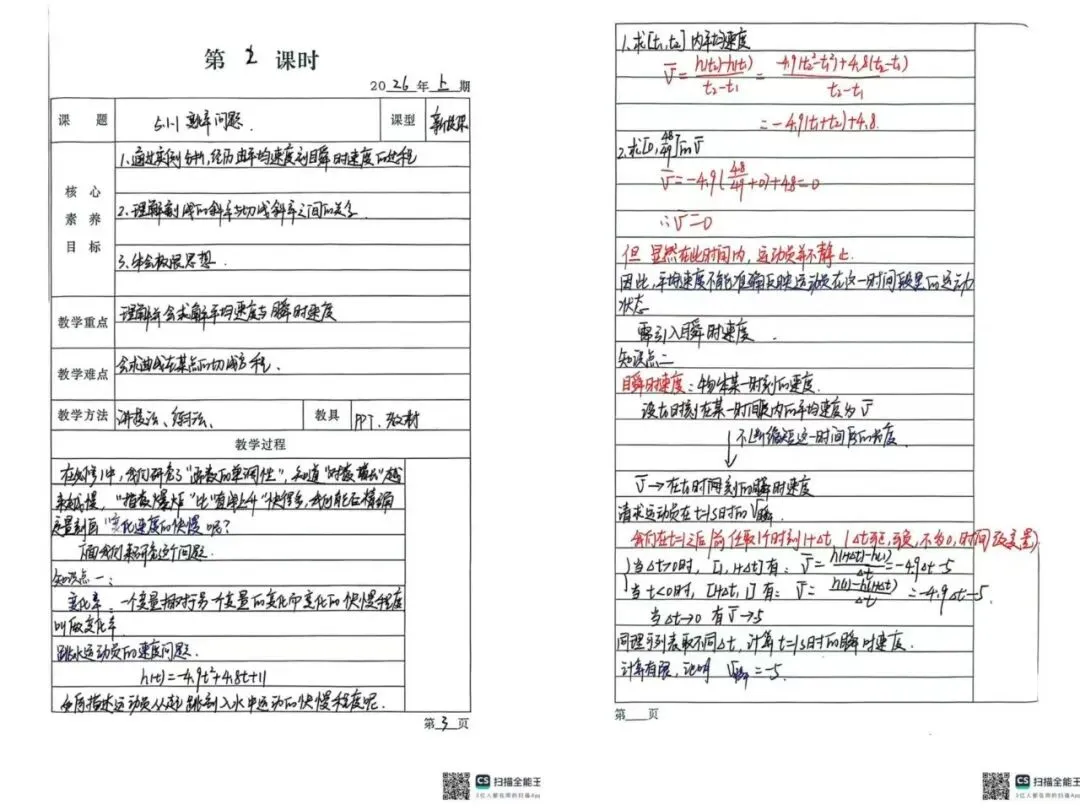 第 2 课时
2026年上期
课题 5.1.1 变化率问题. 课型 新授课
核心素养目标
1.通过实例分析,经历由平均速度到瞬时速度的过程
2.理解割线的斜率与切线斜率之间的关系
3.体会极限思想.
教学重点 理解并会求解平均速度与瞬时速度
教学难点 会求曲线在某点的切线方程.
教学方法 讲授法、 教具 PPT、教材
教学过程
在必修1中,我们研究了“函数的单调性”,知道“对数增长”越
来越慢,“指数爆炸”比“直线上升”快得多,我们能否精确
定量刻画“变化速度的快慢呢?
下面我们来研究这个问题.
知识点一:
变化率:一个变量相对于另一个变量的变化而变化的快慢程度
叫做变化率
跳水运动员的速度问题.
h(t)=-4.9t²+4.8t+11
如何描述运动员从起跳到入水中运动的快慢程度呢.
第 3 页
1.求[t₁,t₂]内平均速度
v̄ = h(t₂)-h(t₁) / t₂-t₁ = -4.9(t₂²-t₁²)+4.8(t₂-t₁) / t₂-t₁
= -4.9(t₁+t₂)+4.8.
2.求[0, 48/49]的v̄
v̄=-4.9(48/49+0)+4.8=0
∴v̄=0
但 显然在此时间内,运动员并不静止.
因此,平均速度不能准确反映运动员在这一时间段里的运动
状态
需引入瞬时速度.
知识点二
瞬时速度:物体某一时刻的速度.
设t₀时刻在某一时间段内的平均速度为v̄
↓不断缩短这一时间段的长度.
v̄→在t₀时间刻的瞬时速度
请求运动员在t=1s时的v瞬.
我们在t=1之后/前任取1个时刻1+Δt, (Δt可正,可负,不为0,时间改变量)
当Δt>0时, [1,1+Δt]有: v̄= h(1+Δt)-h(1) / Δt =-4.9Δt-5
当t<0时, [1+Δt,1]有: v̄= h(1)-h(1+Δt) / Δt =-4.9Δt-5.
当Δt→0 有v̄→-5
同理可列表取不同Δt,计算t=1s时的瞬时速度.
计算有限,证明 v瞬=-5.
第 页
CS 扫描全能王
3亿人都在用的扫描App
CS 扫描全能王
3亿人都在用的扫描App